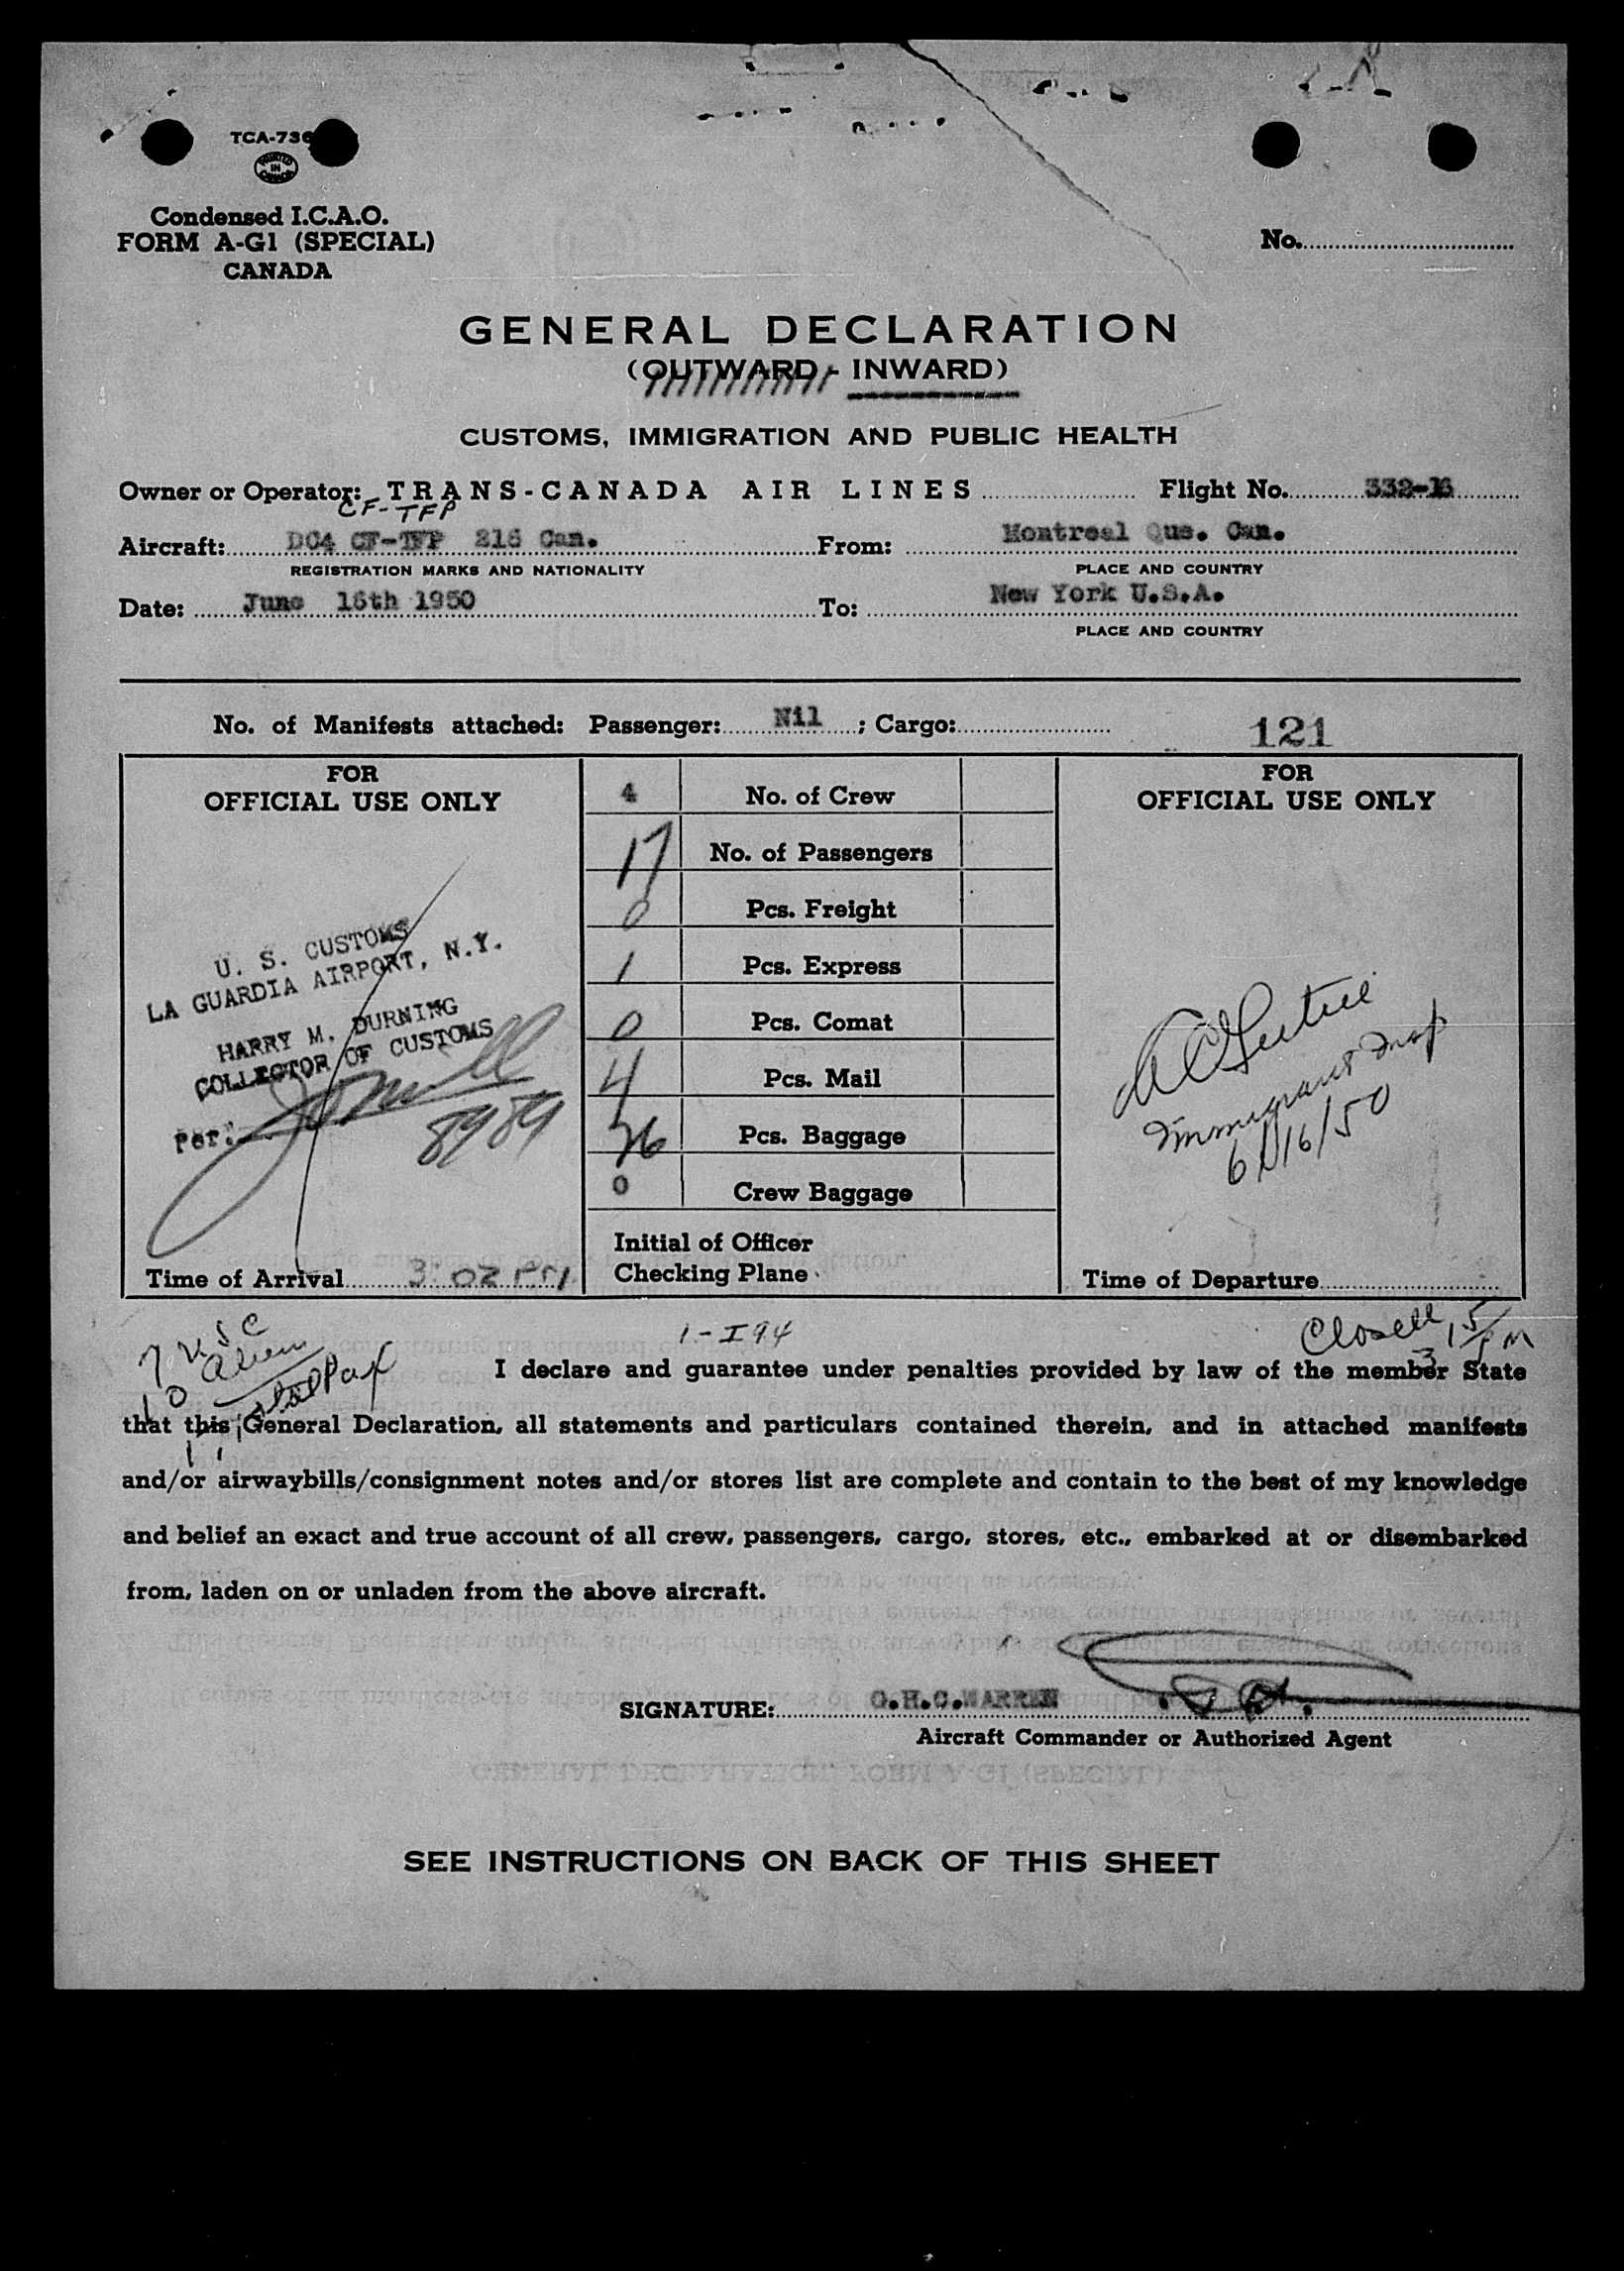 TCA-736
PRINTED IN CANADA
Condensed I.C.A.O.
FORM A-G1 (SPECIAL)
CANADA
No.
GENERAL DECLARATION
(OUTWARD - INWARD)
CUSTOMS, IMMIGRATION AND PUBLIC HEALTH
Owner or Operator: TRANS-CANADA AIR LINES Flight No. 332-16
CF-TFP
Aircraft: DC4 CF-TFP 216 Can. From: Montreal Que. Can.
REGISTRATION MARKS AND NATIONALITY PLACE AND COUNTRY
Date: June 16th 1950 To: New York U.S.A.
PLACE AND COUNTRY
No. of Manifests attached: Passenger: Nil ; Cargo:
121
FOR
OFFICIAL USE ONLY
U. S. CUSTOMS
LA GUARDIA AIRPORT, N.Y.
HARRY M. DURNING
COLLECTOR OF CUSTOMS
Per:
8989
Time of Arrival 3:02 PM
4 No. of Crew
17 No. of Passengers
0 Pcs. Freight
1 Pcs. Express
0 Pcs. Comat
4 Pcs. Mail
Pcs. Baggage
0 Crew Baggage
Initial of Officer
Checking Plane
FOR
OFFICIAL USE ONLY
Immigrant Insp
6/16/50
Time of Departure
7 USC
10 Alien
total Pax
17
1-I94
Closed 3 15 PM
I declare and guarantee under penalties provided by law of the member State
that this General Declaration, all statements and particulars contained therein, and in attached manifests
and/or airwaybills/consignment notes and/or stores list are complete and contain to the best of my knowledge
and belief an exact and true account of all crew, passengers, cargo, stores, etc., embarked at or disembarked
from, laden on or unladen from the above aircraft.
SIGNATURE: G.H.C.WARREN
Aircraft Commander or Authorized Agent
SEE INSTRUCTIONS ON BACK OF THIS SHEET